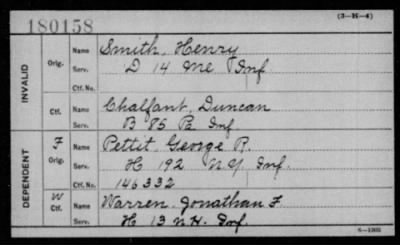 180158 (3-H-4)
INVALID
Orig. Name Smith, Henry
Serv. D 14 Me Inf
Ctf. No.
Ctf. Name Chalfant, Duncan
Serv. B 85 Pa Inf
DEPENDENT
F Orig. Name Pettit, George R.
Serv. H 192 N.Y. Inf.
Ctf. No. 146332
W Ctf. Name Warren, Jonathan F.
Serv. H 13 N.H. Inf.